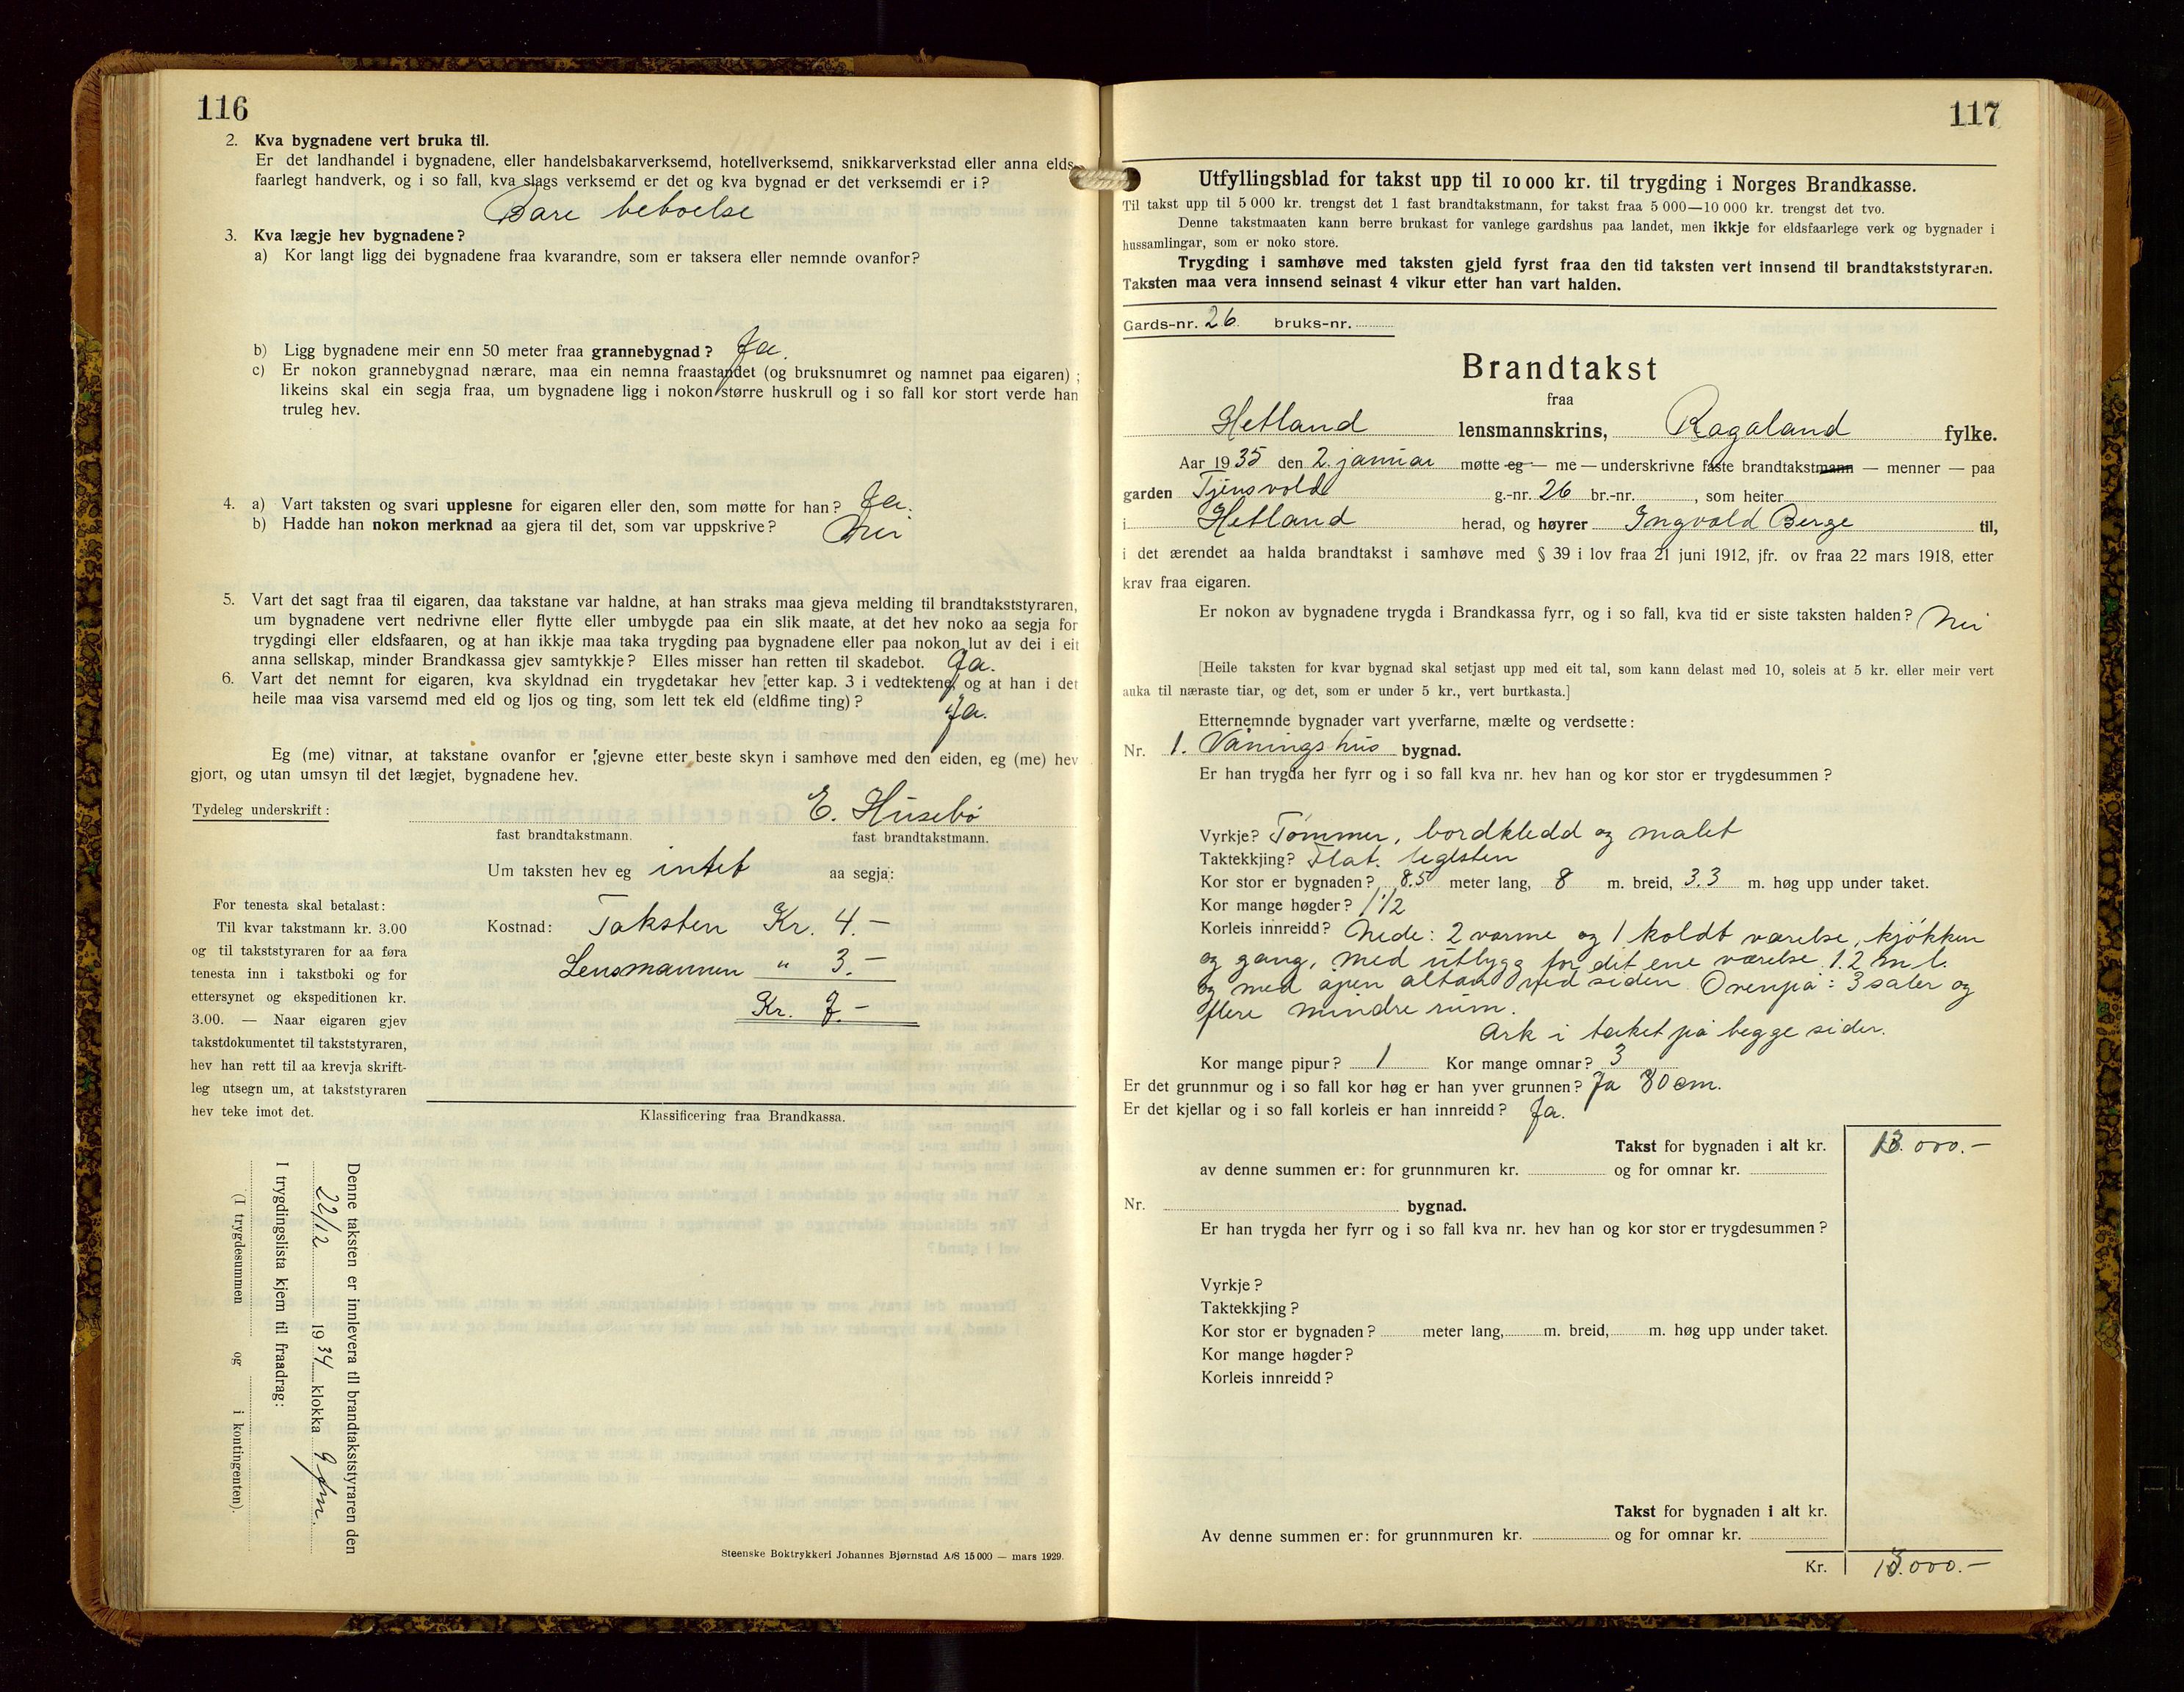 116
2. Kva bygnadene vert bruka til.
Er det landhandel i bygnadene, eller handelsbakarverksemd, hotellverksemd, snikkarverkstad eller anna elds-
faarlegt handverk, og i so fall, kva slags verksemd er det og kva bygnad er det verksemdi er i?
Bare beboelse
3. Kva lægje hev bygnadene?
a) Kor langt ligg dei bygnadene fraa kvarandre, som er taksera eller nemnde ovanfor?
b) Ligg bygnadene meir enn 50 meter fraa grannebygnad? Ja.
c) Er nokon grannebygnad nærare, maa ein nemna fraastandet (og bruksnumret og namnet paa eigaren);
likeins skal ein segja fraa, um bygnadene ligg i nokon større huskrull og i so fall kor stort verde han
truleg hev.
4. a) Vart taksten og svari upplesne for eigaren eller den, som møtte for han? Ja.
b) Hadde han nokon merknad aa gjera til det, som var uppskrive? Nei
5. Vart det sagt fraa til eigaren, daa takstane var haldne, at han straks maa gjeva melding til brandtakststyraren,
um bygnadene vert nedrivne eller flytte eller umbygde paa ein slik maate, at det hev noko aa segja for
trygdingi eller eldsfaaren, og at han ikkje maa taka trygding paa bygnadene eller paa nokon lut av dei i eit
anna sellskap, minder Brandkassa gjev samtykkje? Elles misser han retten til skadebot. Ja.
6. Vart det nemnt for eigaren, kva skyldnad ein trygdetakar hev [etter kap. 3 i vedtektene] og at han i det
heile maa visa varsemd med eld og ljos og ting, som lett tek eld (eldfime ting)? Ja.
Eg (me) vitnar, at takstane ovanfor er gjevne etter beste skyn i samhøve med den eiden, eg (me) hev
gjort, og utan umsyn til det lægjet, bygnadene hev.
Tydeleg underskrift: E. Husebø
fast brandtakstmann. fast brandtakstmann.
Um taksten hev eg intet aa segja:
For tenesta skal betalast:
Til kvar takstmann kr. 3.00
og til takststyraren for aa føra
tenesta inn i takstboki og for
ettersynet og ekspeditionen kr.
3.00. — Naar eigaren gjev
takstdokumentet til takststyraren,
hev han rett til aa krevja skrift-
leg utsegn um, at takststyraren
hev teke imot det.
Kostnad: Taksten Kr. 4.—
Lensmannen " 3.—
Kr. 7.—
Klassificering fraa Brandkassa.
Denne taksten er innlevera til brandtakststyraren den
22/12 1934 klokka 9 fm.
I trygdingslista kjem til fraadrag:
(I trygdesummen og i kontingenten).
Steenske Boktrykkeri Johannes Bjørnstad A/S 15000 — mars 1929.
117
Utfyllingsblad for takst upp til 10 000 kr. til trygding i Norges Brandkasse.
Til takst upp til 5 000 kr. trengst det 1 fast brandtakstmann, for takst fraa 5 000—10 000 kr. trengst det tvo.
Denne takstmaaten kann berre brukast for vanlege gardshus paa landet, men ikkje for eldsfaarlege verk og bygnader i
hussamlingar, som er noko store.
Trygding i samhøve med taksten gjeld fyrst fraa den tid taksten vert innsend til brandtakststyraren.
Taksten maa vera innsend seinast 4 vikur etter han vart halden.
Gards-nr. 26. bruks-nr.
Brandtakst
fraa
Hetland lensmannskrins, Rogaland fylke.
Aar 1935 den 2. januar møtte eg — me — underskrivne faste brandtakstmann — menner — paa
garden Tjensvold g.-nr. 26 br.-nr. , som heiter
i Hetland herad, og høyrer Ingvald Berge til,
i det ærendet aa halda brandtakst i samhøve med § 39 i lov fraa 21 juni 1912, jfr. ov fraa 22 mars 1918, etter
krav fraa eigaren.
Er nokon av bygnadene trygda i Brandkassa fyrr, og i so fall, kva tid er siste taksten halden? Nei
[Heile taksten for kvar bygnad skal setjast upp med eit tal, som kann delast med 10, soleis at 5 kr. eller meir vert
auka til næraste tiar, og det, som er under 5 kr., vert burtkasta.]
Etternemnde bygnader vart yverfarne, mælte og verdsette:
Nr. 1. Våningshus bygnad.
Er han trygda her fyrr og i so fall kva nr. hev han og kor stor er trygdesummen?
Vyrkje? Tømmer, bordkledd og malet
Taktekkjing? Flat. teglsten
Kor stor er bygnaden? 8.50 meter lang, 8 m. breid, 3.3 m. høg upp under taket.
Kor mange høgder? 1 1/2
Korleis innreidd? Nede: 2 varme og 1 koldt værelse, kjøkken
og gang, med utbygg for det ene værelse 1.2 m l.
og med åpen altan ved siden. Ovenpå: 3 saler og
flere mindre rum.
Ark i taket på begge sider.
Kor mange pipur? 1 Kor mange omnar? 3
Er det grunnmur og i so fall kor høg er han yver grunnen? Ja 80 cm.
Er det kjellar og i so fall korleis er han innreidd? Ja.
Takst for bygnaden i alt kr. 13.000.—
av denne summen er: for grunnmuren kr. og for omnar kr.
Nr. bygnad.
Er han trygda her fyrr og i so fall kva nr. hev han og kor stor er trygdesummen?
Vyrkje?
Taktekkjing?
Kor stor er bygnaden? meter lang, m. breid, m. høg upp under taket.
Kor mange høgder?
Korleis innreidd?
Takst for bygnaden i alt kr.
Av denne summen er: for grunnmuren kr. og for omnar kr.
Kr. 13.000.—